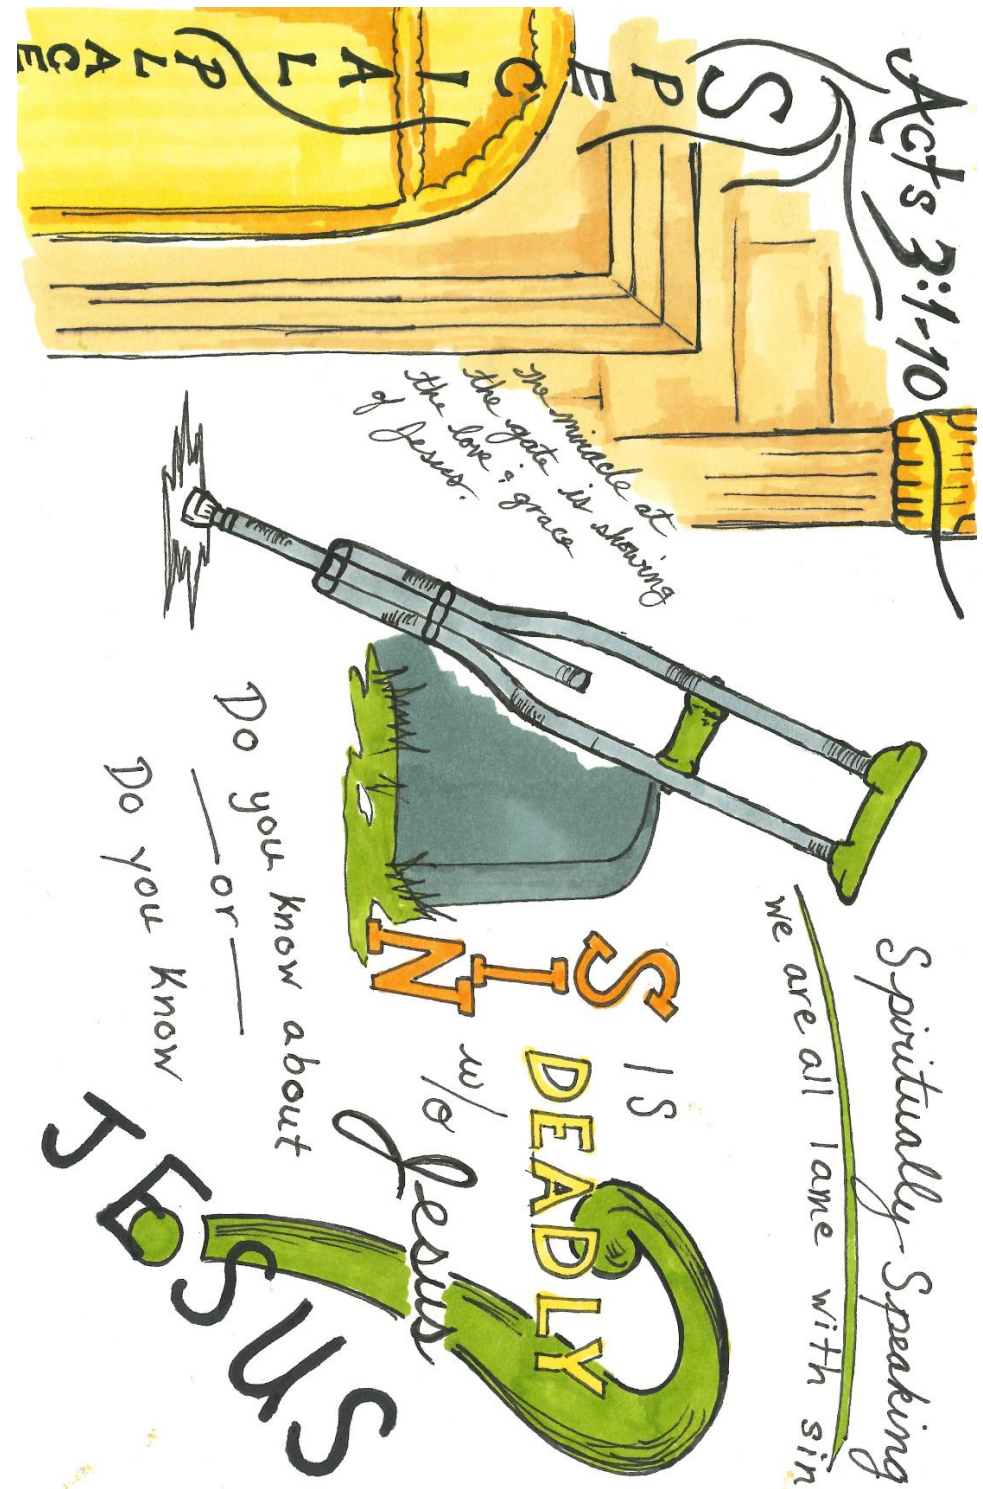 Acts 3:1-10
SPECIAL
PLACE
The miracle at
the gate is showing
the love & grace
of Jesus.
Spiritually Speaking
we are all lame with sin
SIN
IS
DEADLY
w/o
Jesus
Do you know about
or
Do you know
JESUS